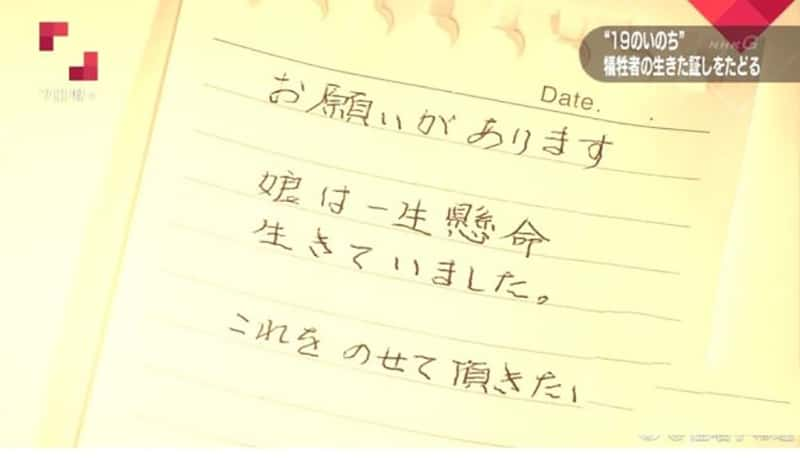 “19のいのち”
犠牲者の生きた証しをたどる
NHK G
Date. .
お願いがあります
娘は一生懸命
生きていました。
これをのせて頂きたい